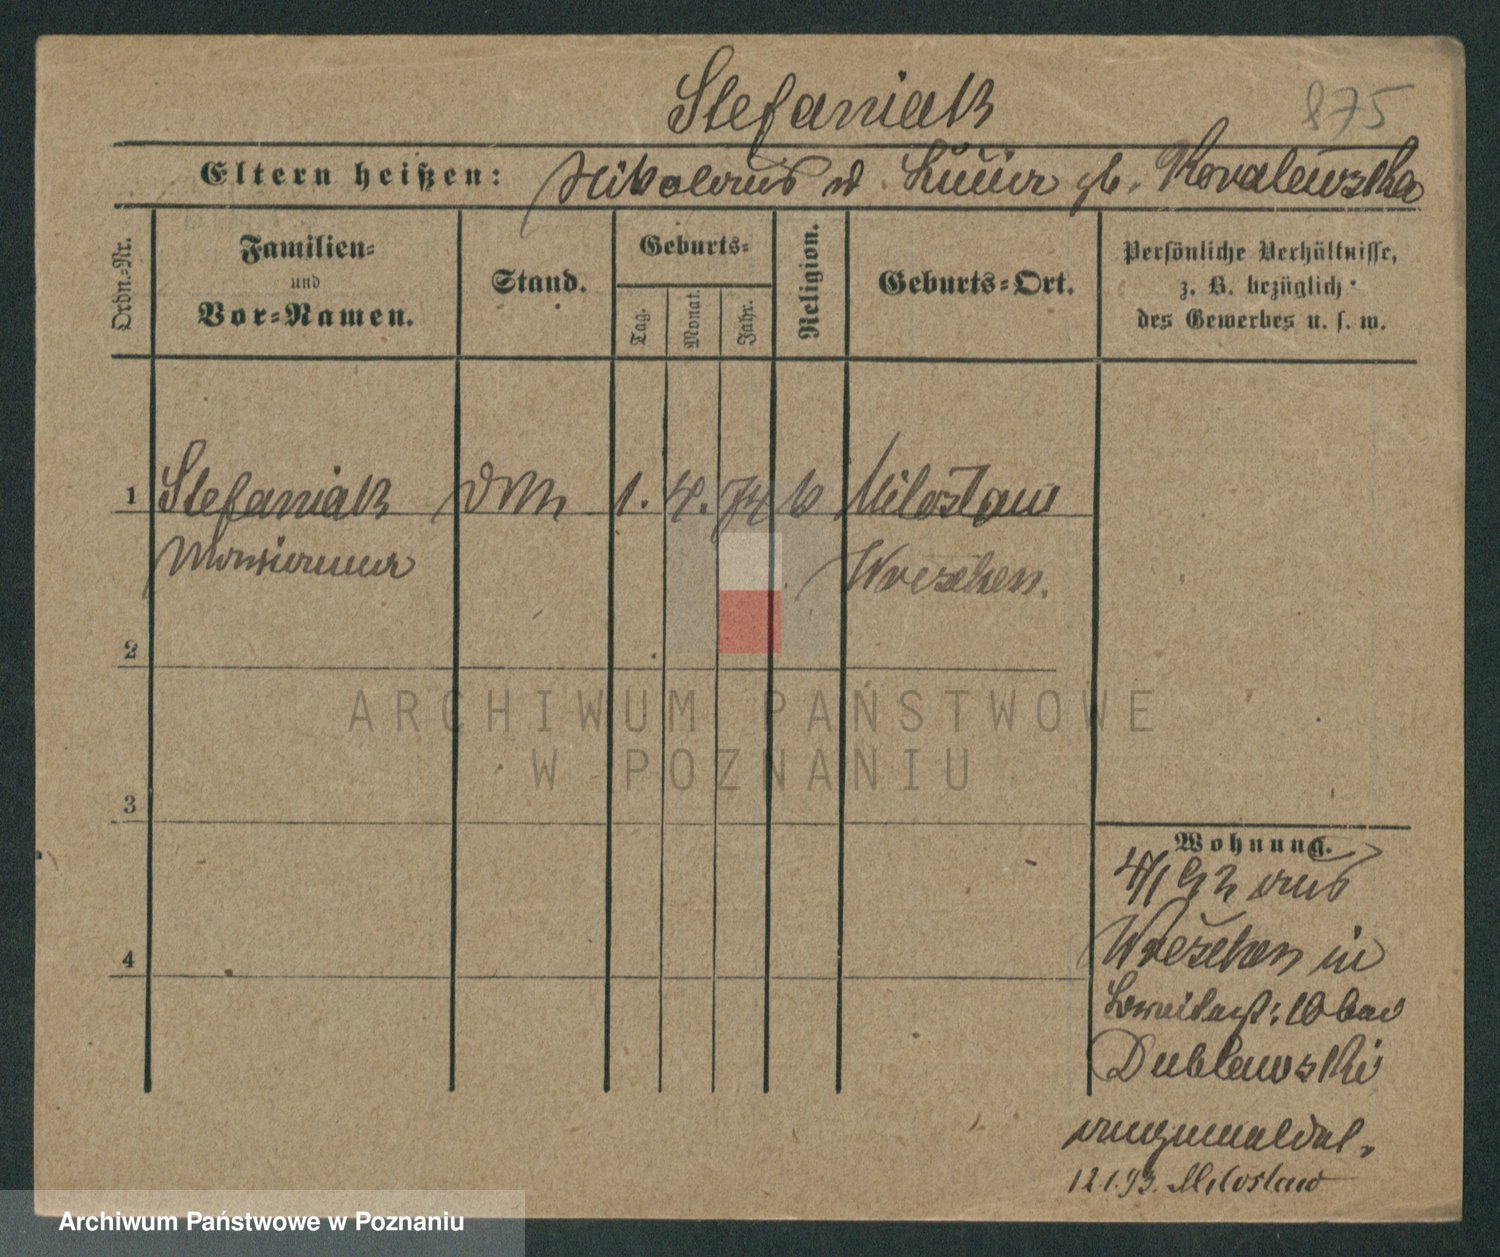 Stefaniak
875
Eltern heißen: Nikolaus u. geb. Kovalewska
Ordn.-Nr.
Familien-
und
Vor-Namen.
Stand.
Geburts-
Tag.
Monat.
Jahr.
Religion.
Geburts-Ort.
Persönliche Verhältnisse,
z. B. bezüglich
des Gewerbes u. s. w.
1 Stefaniak 1. 4. 74 k Miloslaw
Marianna Wreschen.
2
ARCHIWUM PAŃSTWOWE
W POZNANIU
3
4
Wohnung.
4/1 92 aus
Wreschen in
Breitestr: 10 bei
Dublewski
angemeldet.
12.1.93. Miloslaw
Archiwum Państwowe w Poznaniu